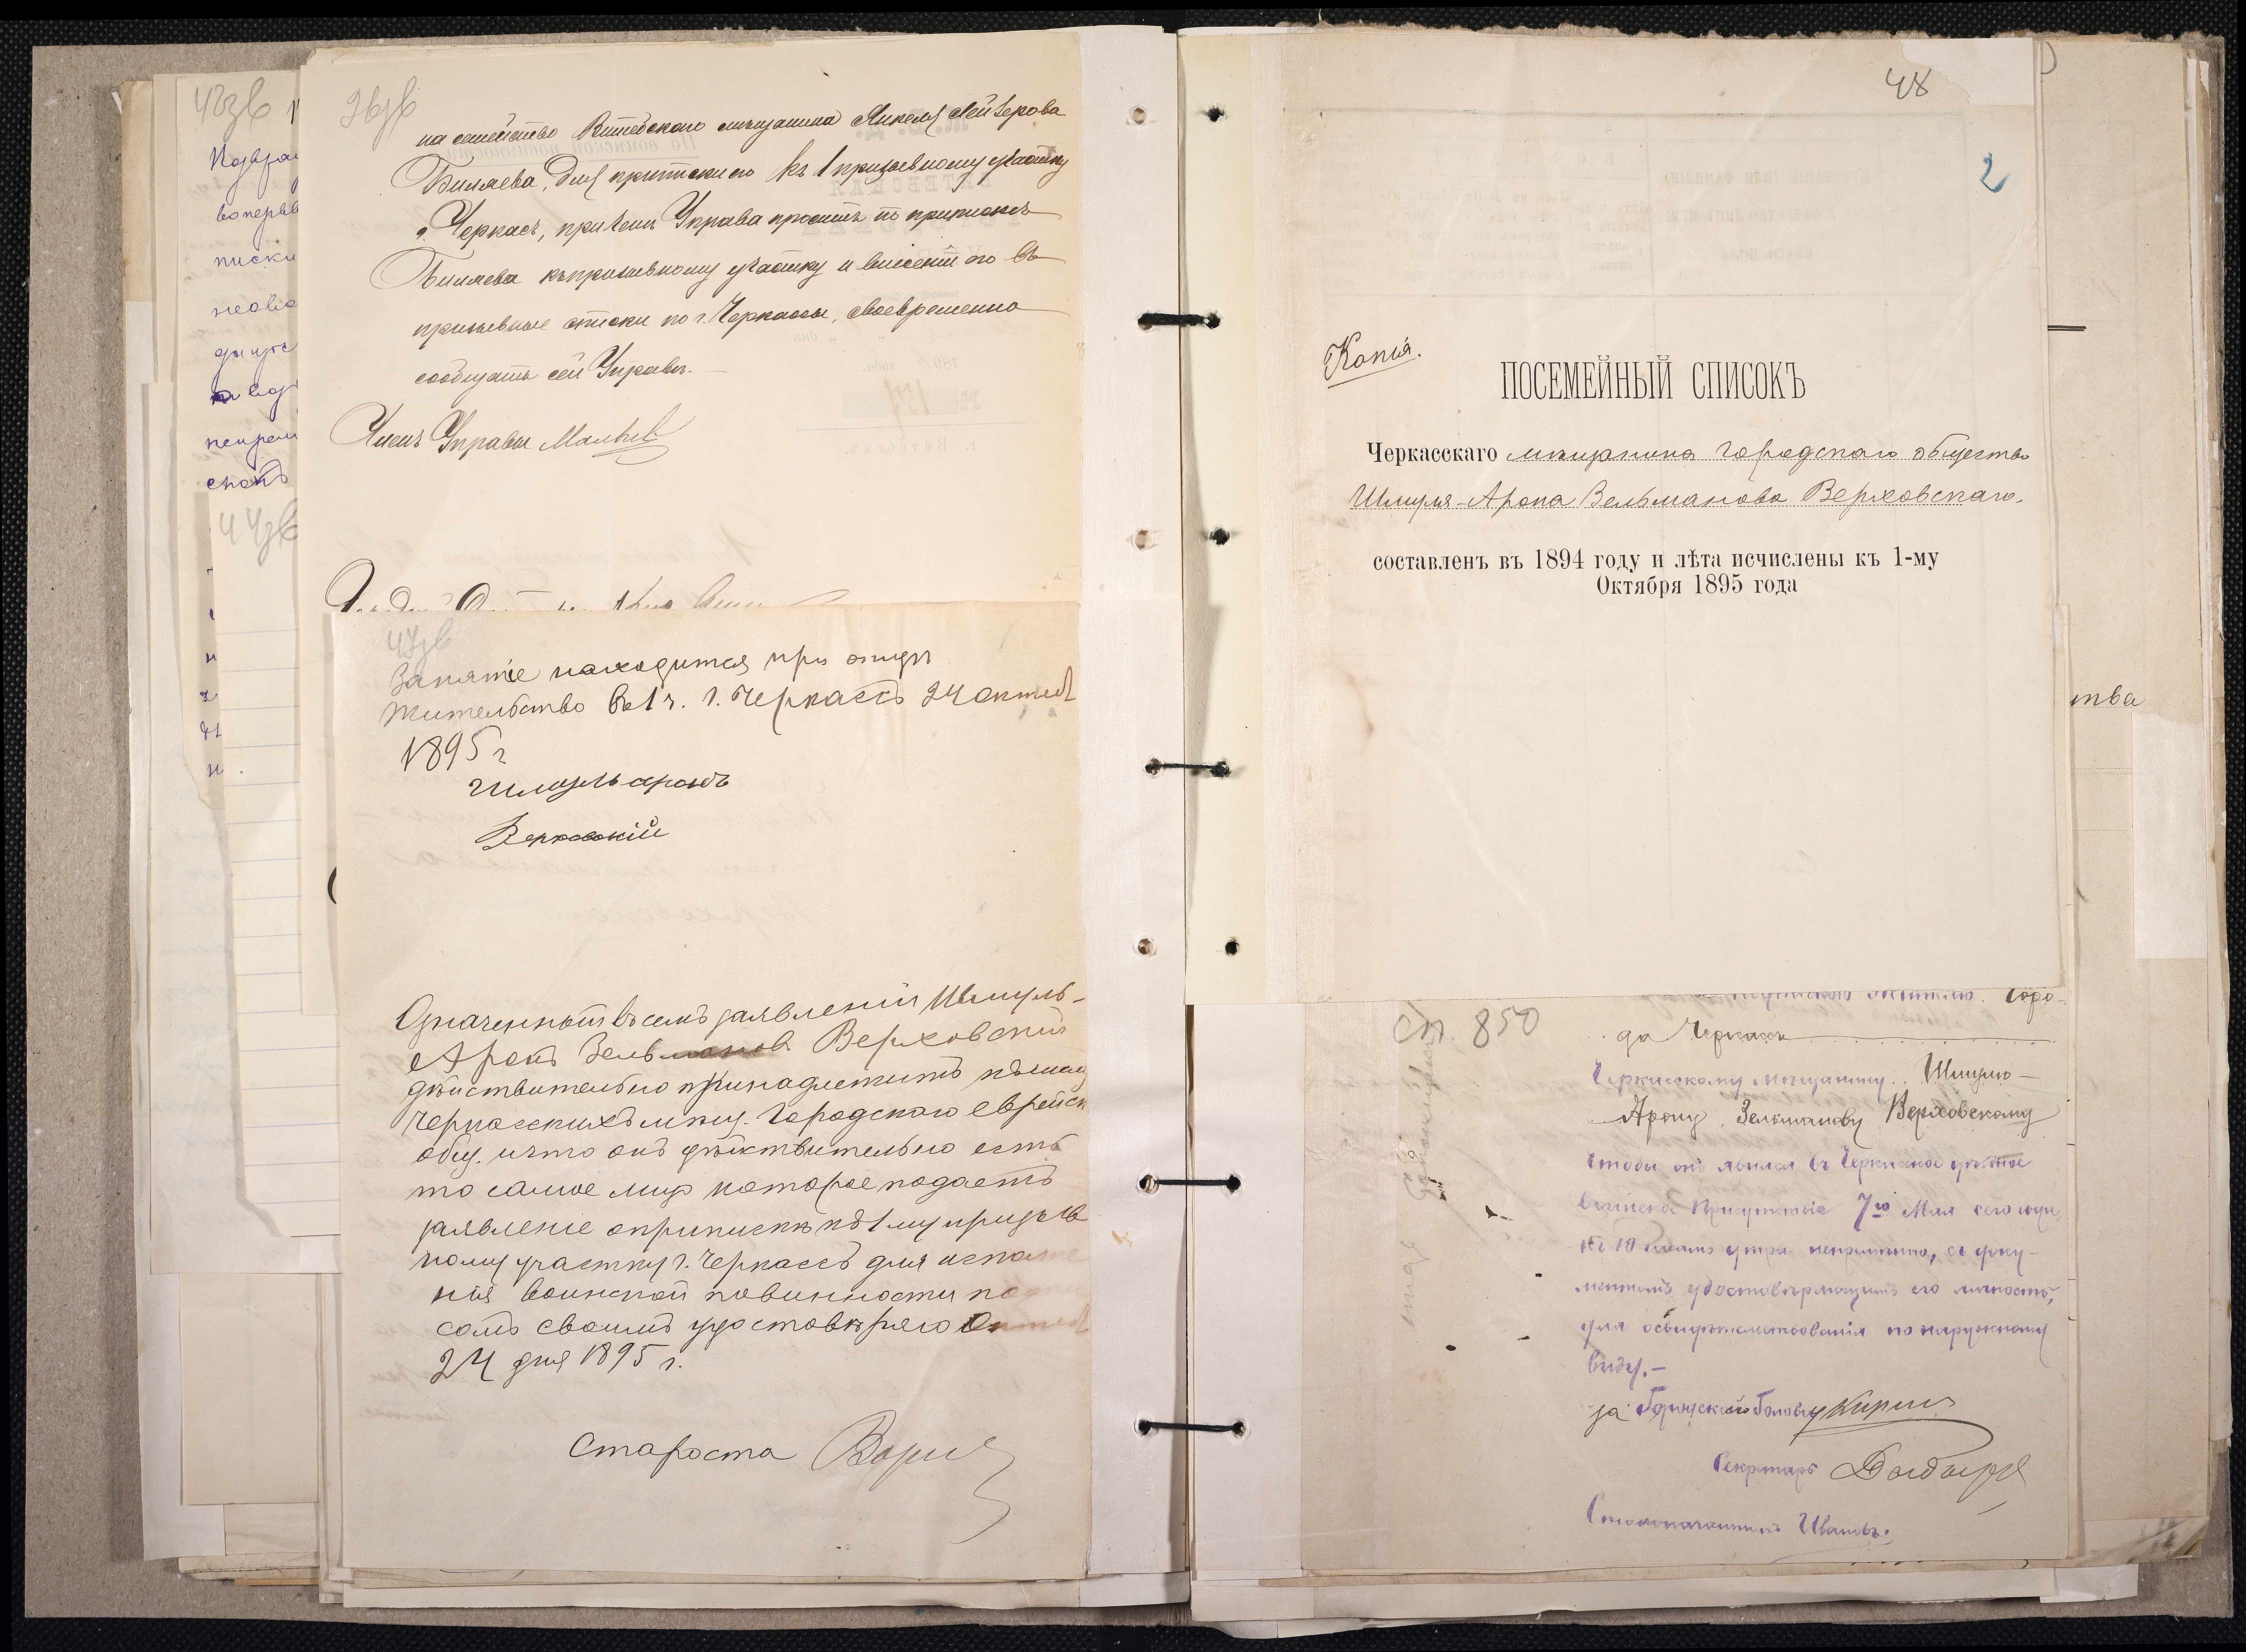 36зв
на семейство Витебскаго мѣщанина Янкеля Лейзерова
Биляева, для приписки его къ 1 призывному участку
г. Черкасъ, причемъ Управа проситъ по припискѣ
Биляева къ призывному участку и внесеніи его въ
призывные списки по г. Черкассы, своевременно
сообщить сей Управѣ.
Членъ Управы
42зв
44зв
47зв
Занятіе находится при отцѣ
жительство въ 1 ч. г. Черкассъ 24 октяб
1895 г
Шмуль аронъ
Верховскій
Означенный въ семъ заявленіи Шмуль-
Аронъ Зельманов Верховскій
дѣйствительно принадлежитъ къ
Черкасскихъ мѣщ. Городскаго Еврейск
общ. и что онъ дѣйствительно есть
то самое лицо которое подаетъ
заявленіе о припискѣ къ 1 му призыв
ному участку г. Черкассъ для испол
нія воинской повинности по
сомъ своимъ удостовѣряю
24 дня 1895 г.
Староста
48
2
Копія.
ПОСЕМЕЙНЫЙ СПИСОКЪ
Черкасскаго мѣщанина Городскаго общества
Шмуля-Арона Зельманова Верховскаго.
составленъ въ 1894 году и лѣта исчислены къ 1-му
Октября 1895 года
тва
Горо-
да Черкассъ
Сп. 850
Черкасскому мѣщанину Шмулю-
Арону Зельманову Верховскому
чтобы онъ явился въ Черкасское уѣздное
Воинское Присутствіе 7го Мая сего года,
къ 10 часамъ утра непремѣнно, съ доку-
ментомъ удостовѣряющимъ его личность,
для освидѣтельствованія по наружному
виду.-
за Городскаго Голову
Секретарь
Столоначальникъ Ивановъ.